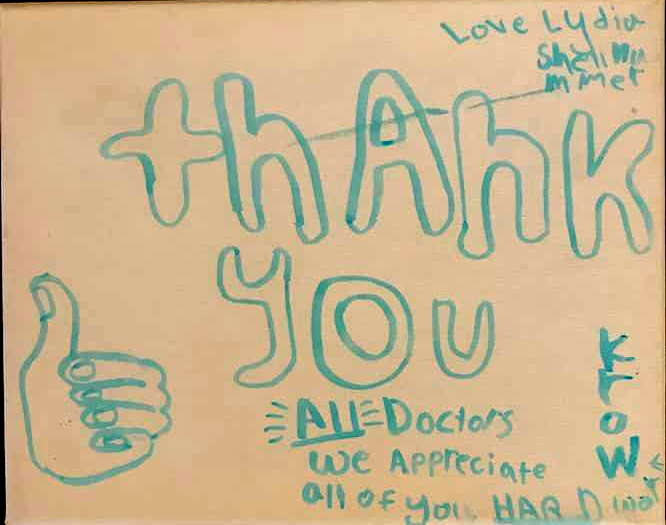 Love Lydia
thAnk
you
All Doctors
we Appreciate
all of you HARD
K
r
o
W